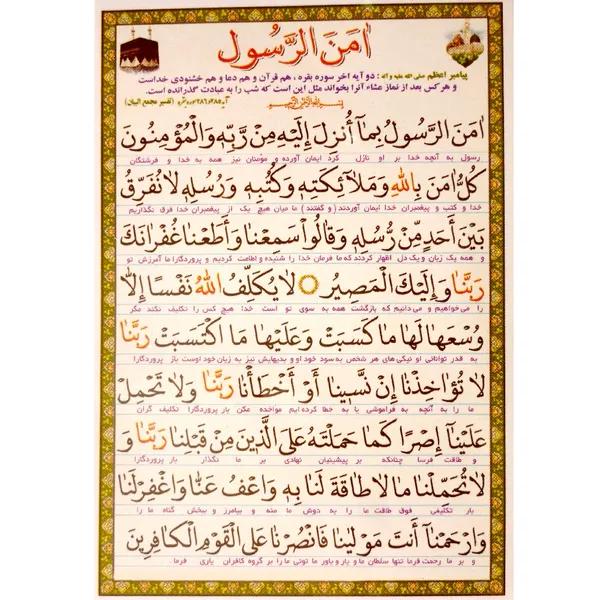 اٰمَنَ الرَّسُول
پیامبر اعظم صلی الله علیه و آله : دو آیه آخر سوره بقره ، هم قرآن و هم دعا و هم خشنودی خداست
و هر کس بعد از نماز عشاء آنرا بخواند مثل این است که شب را به عبادت گذرانده است. (تفسیر مجمع البیان)
اٰمَنَ الرَّسُولُ بِمٰا أُنْزِلَ إِلَيْهِ مِنْ رَبِّهٖ وَالْمُؤْمِنُونَ
رسول به آنچه خدا بر او نازل کرد ایمان آورده و مؤمنان نیز همه به خدا و فرشتگان
كُلٌّ اٰمَنَ بِاللهِ وَمَلٰائِكَتِهٖ وَكُتُبِهٖ وَرُسُلِهٖ لاٰ نُفَرِّقُ
خدا و کتب و پیغمبران خدا ایمان آوردند (و گفتند) ما میان هیچ یک از پیغمبران خدا فرق نگذاریم
بَيْنَ أَحَدٍ مِنْ رُسُلِهٖ وَقٰالُوا سَمِعْنٰا وَأَطَعْنٰا غُفْرٰانَكَ
و همه یک زبان و یک دل اظهار کردند که ما فرمان خدا را شنیده و اطاعت کردیم و پروردگارا ما آمرزش تو
رَبَّنٰا وَإِلَيْكَ الْمَصِيرُ لاٰ يُكَلِّفُ اللهُ نَفْسًا إِلاّٰ
را می‌خواهیم و می دانیم که بازگشت همه به سوی تو است خدا هیچ کس را تکلیف نکند مگر
وُسْعَهٰا لَهٰا مٰا كَسَبَتْ وَعَلَيْهٰا مَا اكْتَسَبَتْ رَبَّنٰا
به قدر توانائی او نیکی های هر شخص به سود خود او و بدیهایش نیز به زیان خود اوست بار پروردگارا
لاٰ تُؤٰاخِذْنٰا إِنْ نَسِينٰا أَوْ أَخْطَأْنٰا رَبَّنٰا وَلاٰ تَحْمِلْ
ما را به آنچه به فراموشی یا به خطا کرده ایم مواخذه مکن بار پروردگارا تکلیف گران
عَلَيْنٰا إِصْرًا كَمٰا حَمَلْتَهُ عَلَى الَّذِينَ مِنْ قَبْلِنٰا رَبَّنٰا وَ
و طاقت فرسا چنانکه بر پیشینیان نهادی بر ما نگذار بار پروردگارا
لاٰ تُحَمِّلْنٰا مٰا لاٰ طٰاقَةَ لَنٰا بِهٖ وَاعْفُ عَنّٰا وَاغْفِرْ لَنٰا
بار تکلیفی فوق طاقت ما را به دوش ما منه و بیامرز و ببخش گناه ما را
وَارْحَمْنٰا أَنْتَ مَوْلٰينٰا فَانْصُرْنٰا عَلَى الْقَوْمِ الْكٰافِرِينَ
و بر ما رحمت فرما تنها سلطان ما و یار و یاور ما توئی ما را بر گروه کافران یاری فرما.